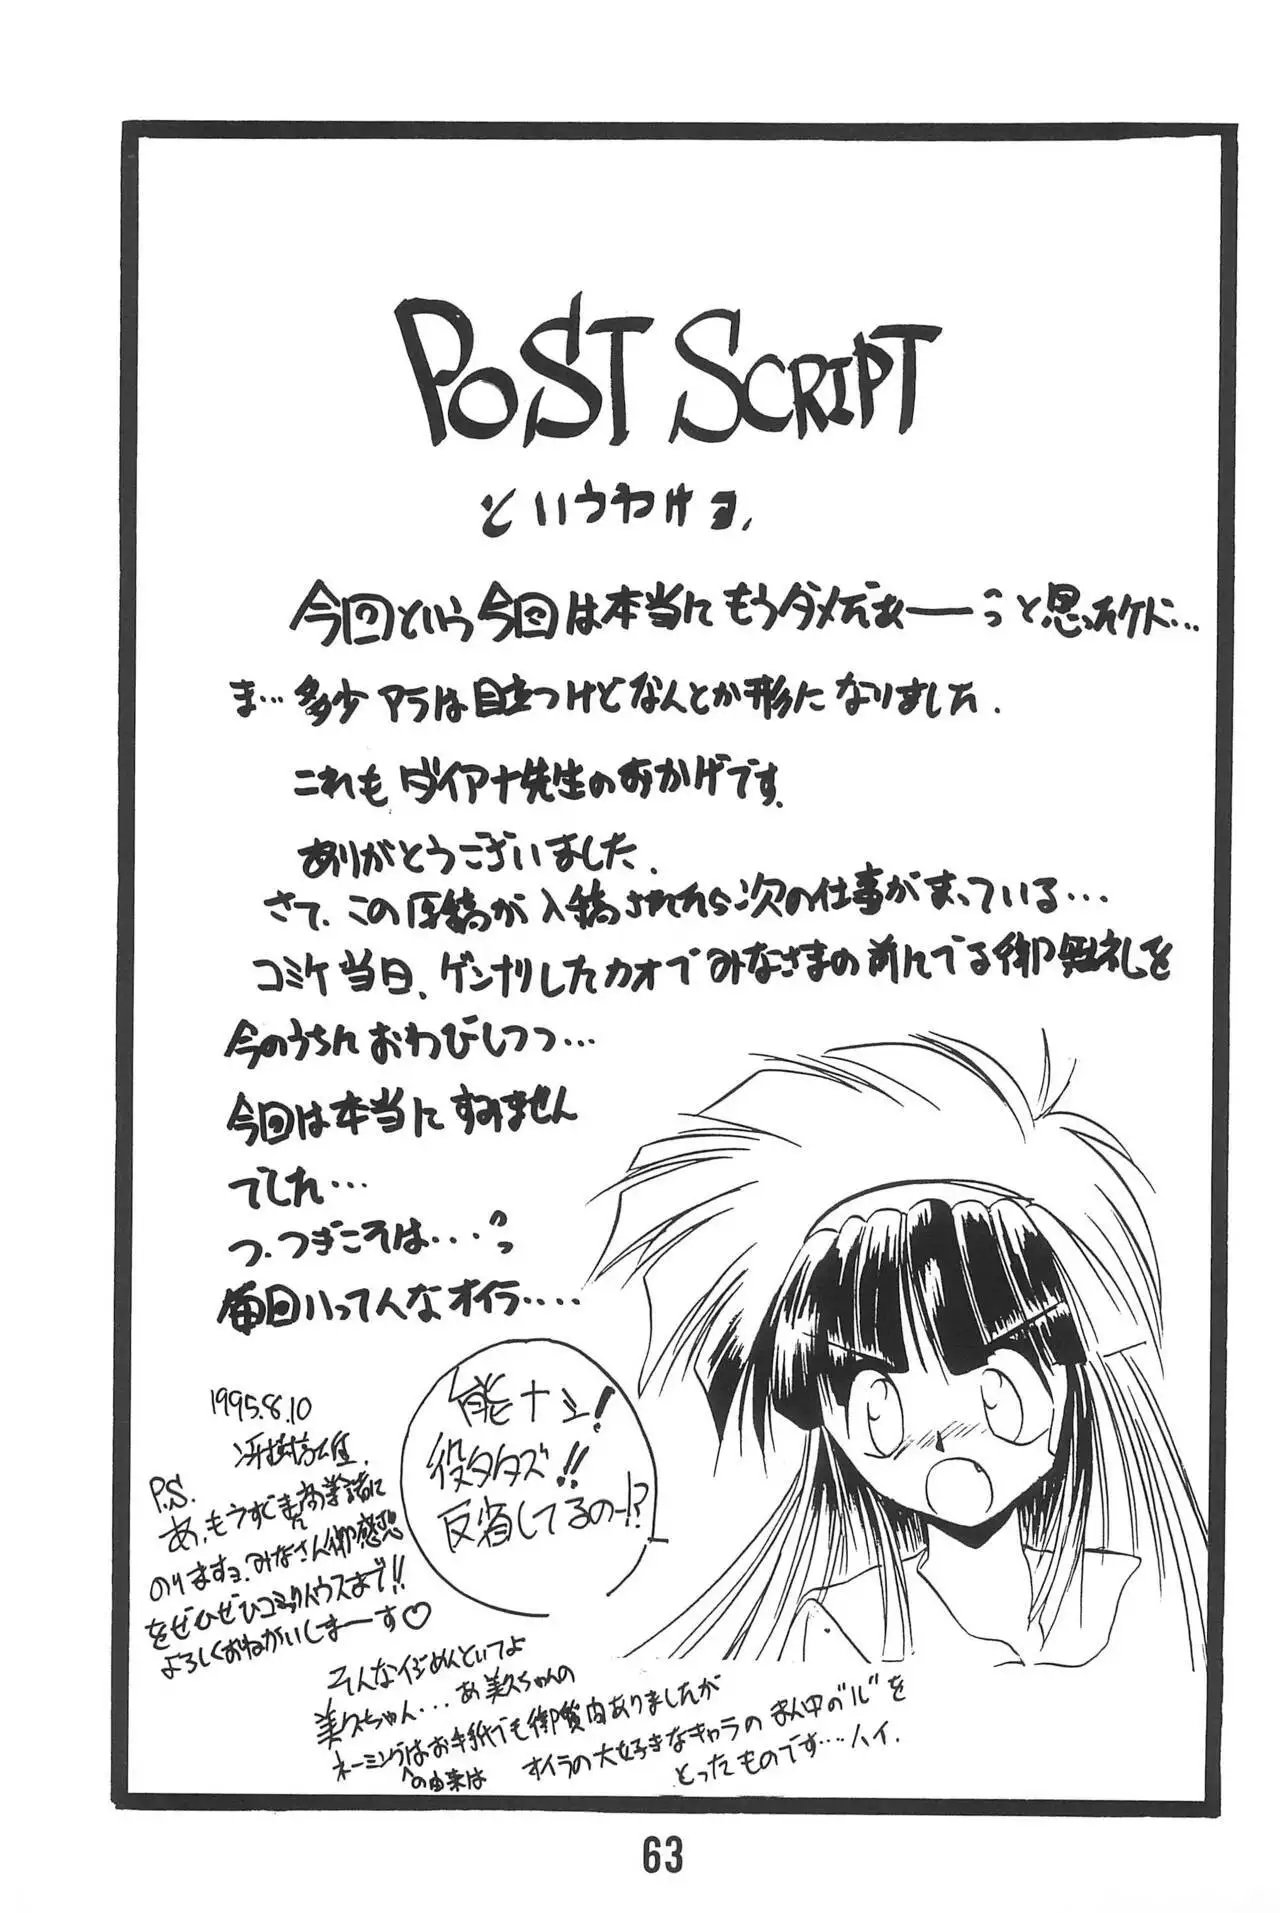 POST SCRIPT
というわけョ.
今回という今回は本当にもうダメだぁーーっと思ったケド…
ま…多少アラは目立つけどなんとか形になりました.
これもダイアナ先生のおかげです.
ありがとうございました.
さて、この原稿が入稿されたら次の仕事がまっている…
コミケ当日、ゲンナリしたカオでみなさまの前にでる御無礼を
今のうちにおわびしつつ…
今回は本当にすみません
でした…
つ、つぎこそは…っ
毎回いってんなオイラ….
1995.8.10
P.S.
あ、もうすぐまた
のりますョ.みなさん御感想
をぜひぜひコミックハウスまで!!
よろしくおねがいしまーす♡
能ナシ!
役タタズ!!
反省してるのー!?
そんなイジめんといてよ
美久ちゃん…あ美久ちゃんの
ネーミングの由来はお手紙でも御質問ありましたが
オイラの大好きなキャラのまん中の"ル"を
とったものです…ハイ.
63